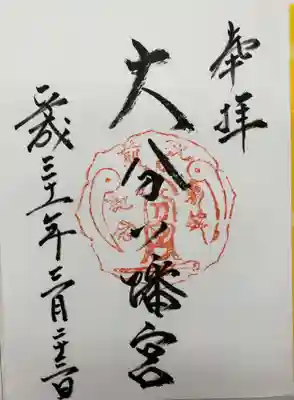 奉拝
大分八幡宮
平成三十一年三月二十三日